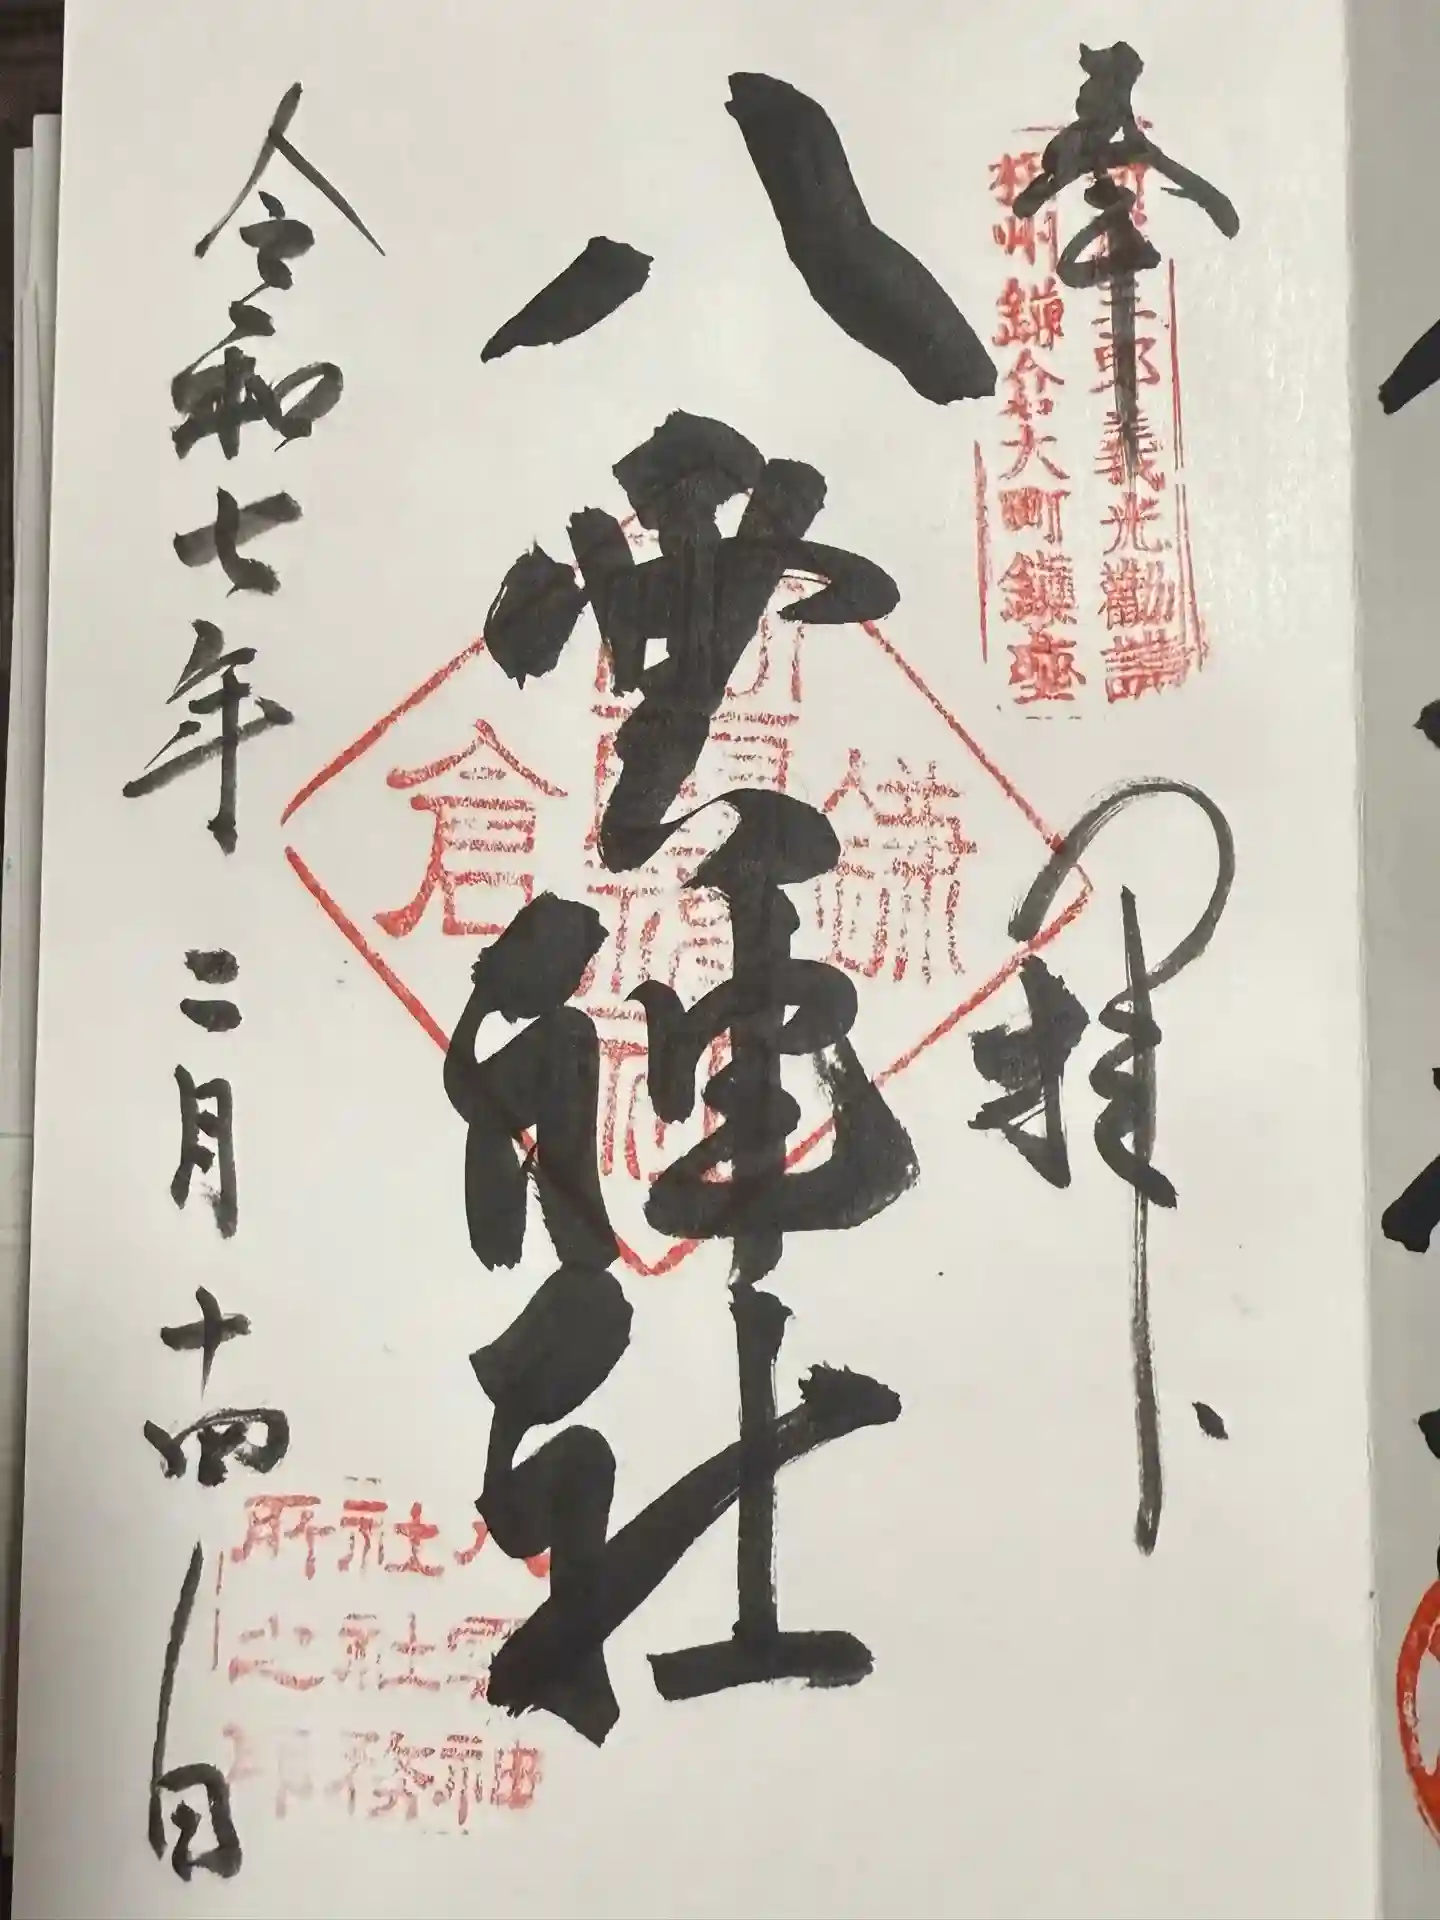 奉拝
三郎義光勧請
相州鎌倉大町鎮座
八雲神社
鎌倉
令和七年二月十四日
八雲神
社社務
所之印